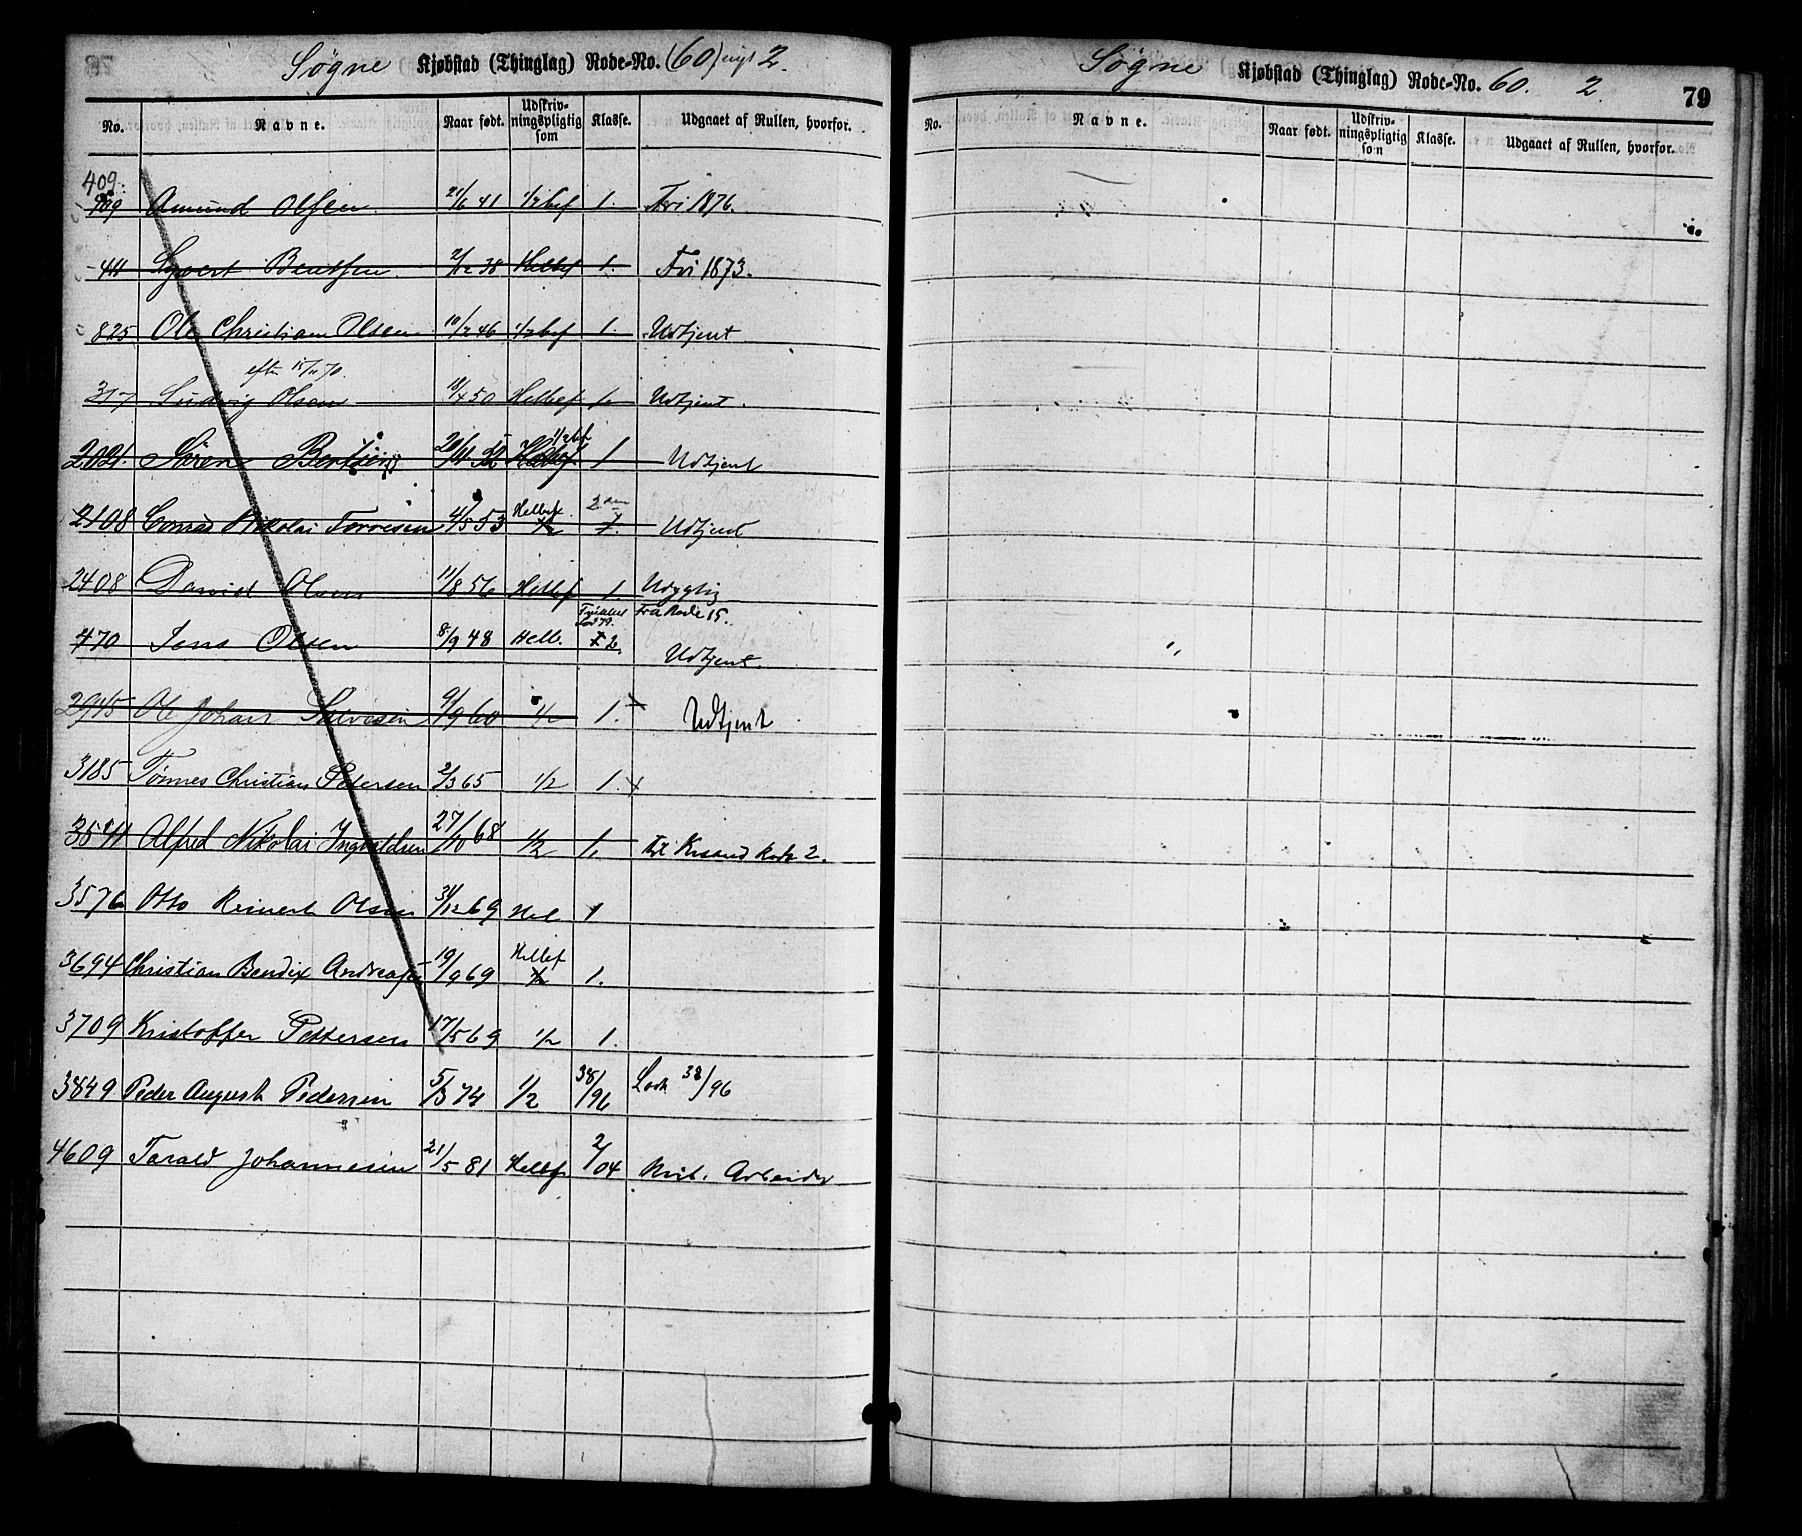 Søgne Kjøbstad (Thinglag) Rode-No. (60) nyt 2.
No. Navne. Naar født. Udskriv-ningspligtig som Klasse. Udgaaet af Rullen, hvorfor.
409.
409 Amund Olsen 21/6 41 1/2bef 1. Fri 1876.
411 Syvert Bentsen 2/12 38 Helbef 1. Fri 1873.
825 Ole Christian Olsen 10/2 46 1/2bef 1. Udtjent
efter 15/11 70.
317 Ludvig Olsen 18/4 50 Helbef 1. Udtjent.
1/2 bef
2021. Søren Bentsen 1 Udtjent
Helbef. 2den
2108 Conrad Nikolai Torresen 4/5 53 1/2 1. Udtjent
2408 David Olsen 11/8 56 Helbef 1 Udygtig
Fra Rode 15.
470 Jens Olsen 8/9 48 Helb. 1 2. Udtjent.
2945 Ole Johan 9/9 60 1/2 1. Udtjent
3185 Tønnes Christian Petersen 2/3 65 1/2 1.
3541 Alfred Nikolai Ingvaldsen 27/10 68 1/2 1. til Krsand Rode 2.
3576 Otto Reinert Olsen 31/12 69 Hel 1
Helbef
3694 Christian Bendix Andreasen 19/9 69 1/2 1.
3709 Kristoffer Pettersen 17/5 69 1/2 1.
3849 Peder August Pedersen 5/3 74 1/2 38/96 Lodt 38/96
4609 Tarald Johannesen 21/5 81 Helbef 2/04 Arbeider
Søgne Kjøbstad (Thinglag) Rode-No. 60. 2.
79
No. Navne. Naar født. Udskriv-ningspligtig som Klasse. Udgaaet af Rullen, hvorfor.